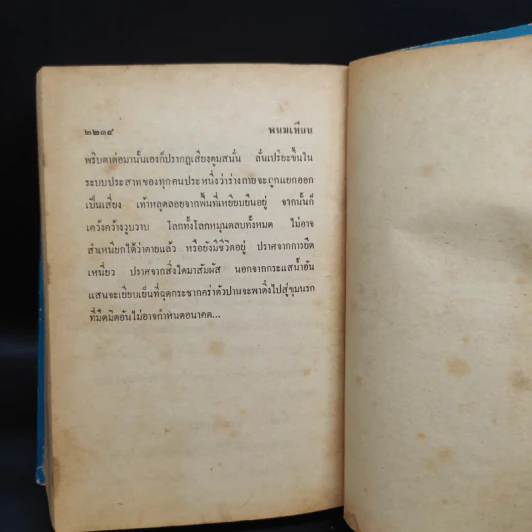 ๒๒๓๔ พนมเทียน
พริบตาต่อมานั้นเองก็ปรากฏเสียงตูมสนั่น ลั่นเปรี๊ยะขึ้นใน
ระบบประสาทของทุกคนประหนึ่งว่าร่างกายจะถูกแยกออก
เป็นเสี่ยง เท้าหลุดลอยจากพื้นที่เหยียบยืนอยู่ จากนั้นก็
เคว้งคว้างวูบวาบ โลกทั้งโลกหมุนตลบทั้งหมด ไม่อาจ
สำเหนียกได้ว่าตายแล้ว หรือยังมีชีวิตอยู่ ปราศจากการยึด
เหนี่ยว ปราศจากสิ่งใดมาสัมผัส นอกจากกระแสน้ำอัน
แสนจะเยียบเย็นที่ฉุดกระชากคร่าตัวปานจะพาดิ่งไปสู่ขุมนรก
ที่มืดมิดอันไม่อาจกำหนดอนาคต...